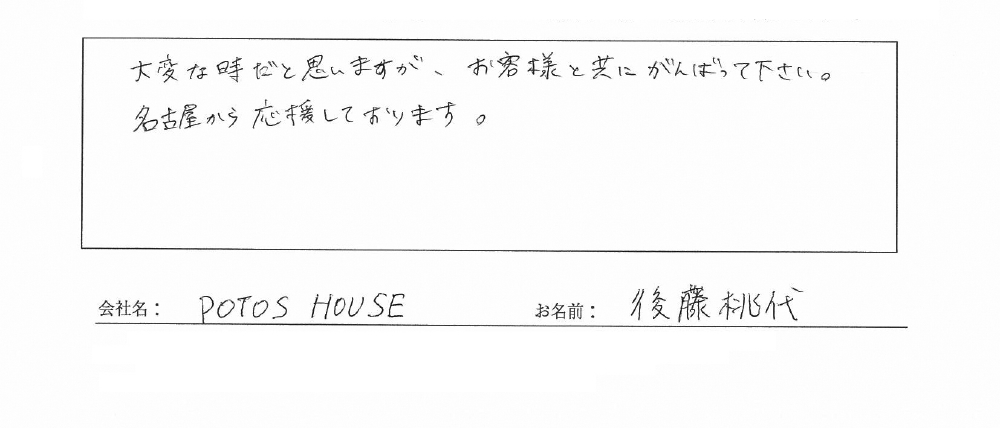 大変な時だと思いますが、お客様と共にがんばって下さい。
名古屋から応援しております。
会社名： POTOS HOUSE お名前： 後藤桃代